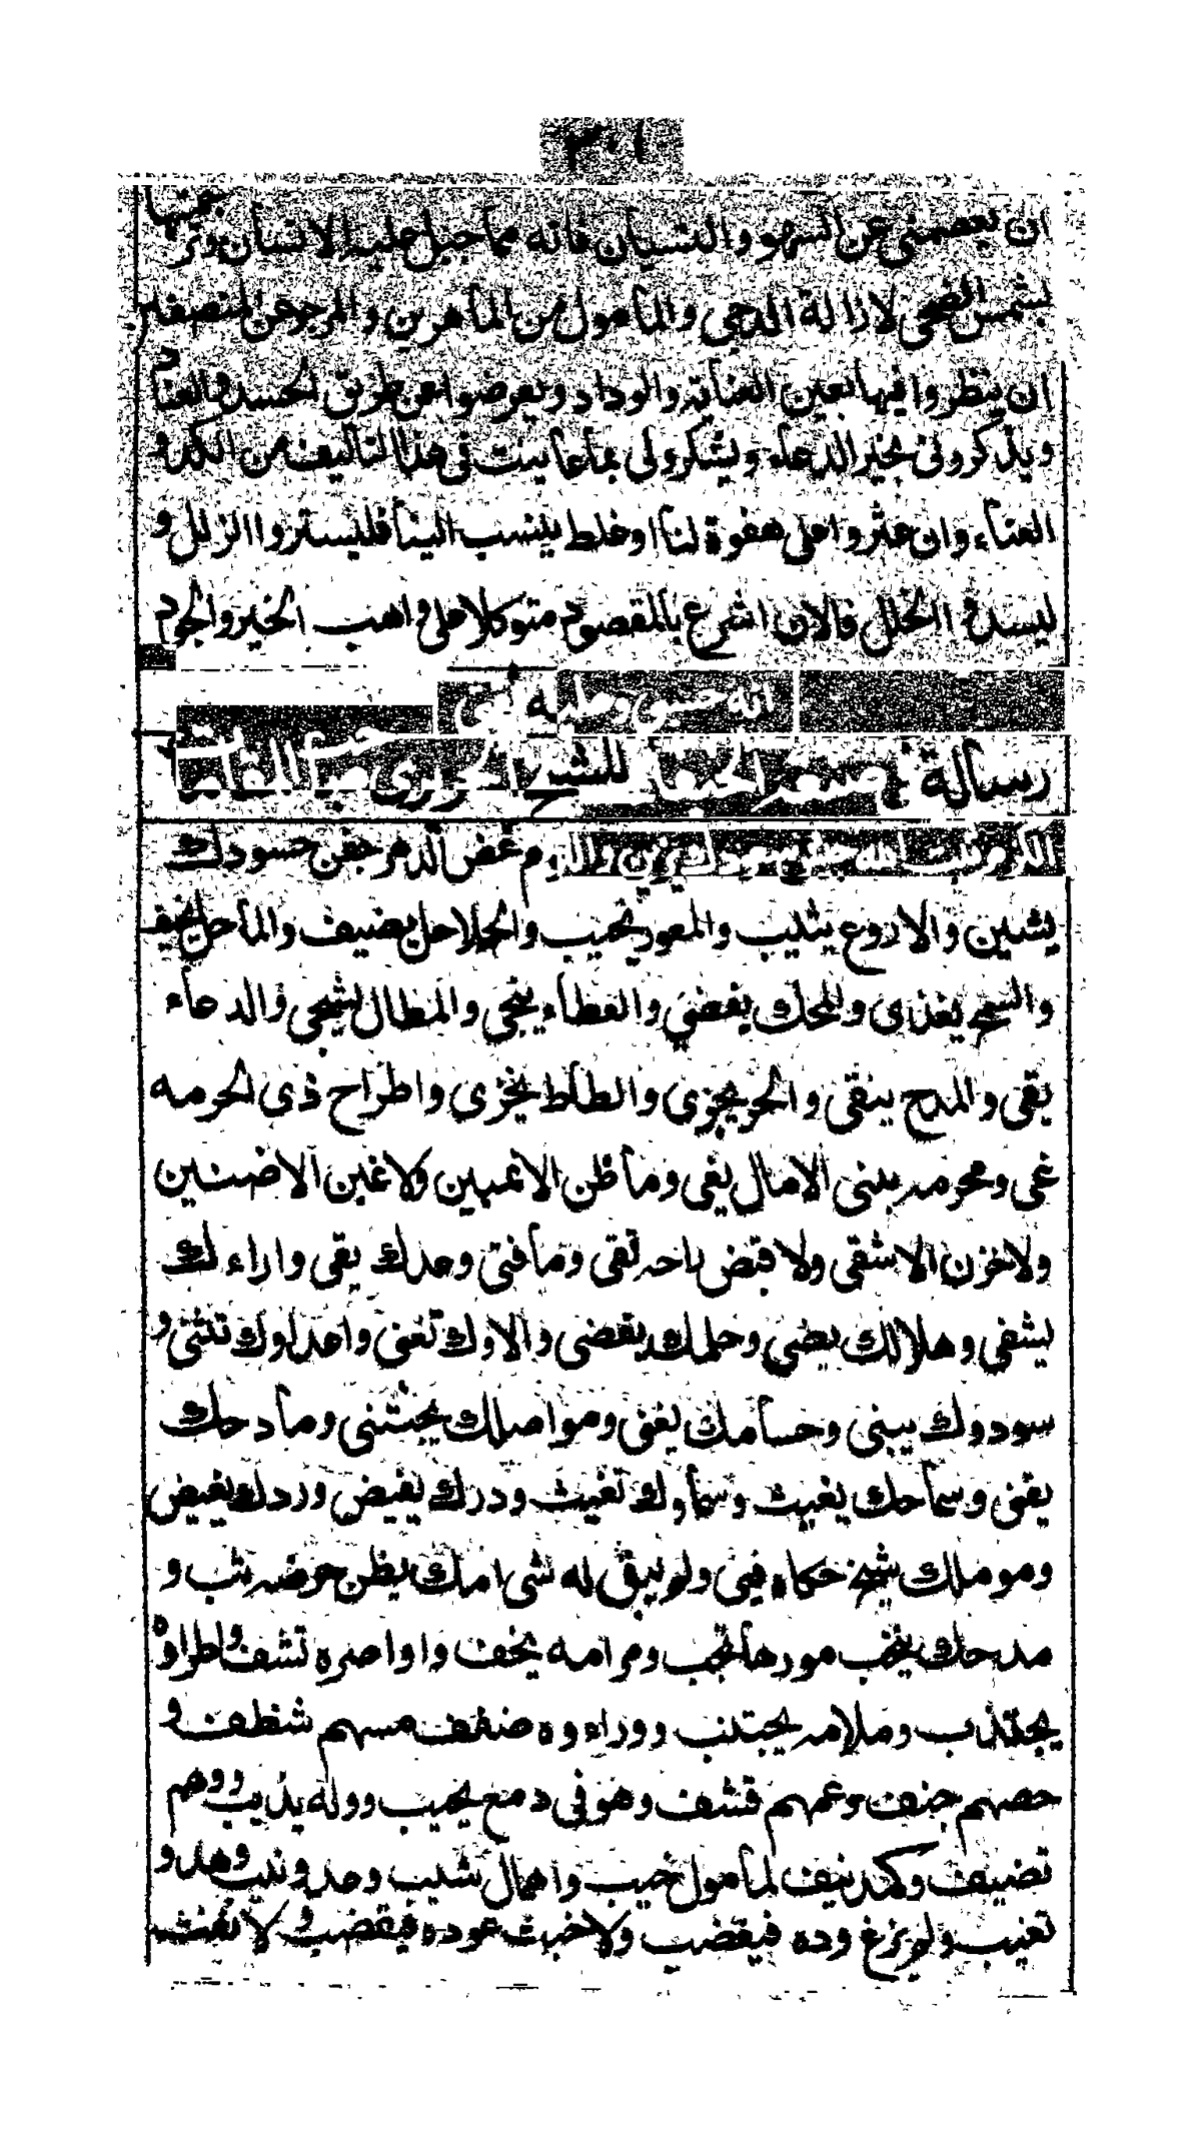 ان يعصمنى عن السهو والنسيان فانه مما جبل عليه الانسان وترجمتها
بشمس الضحى لازالة الدجى والمأمول من الماهرين والمرجو عن المنصفين
ان ينظروا فيها بعين العناية والوداد ويعرضوا عن طريق الحسد والعناد
ويذكرونى بخير الدعاء ويشكرولى بما عانيت فى هذا التاليف من الكد و
العناء وان عثروا على هفوة لنا او خلط ينسب الينا فليستروا الزلل و
ليسدوا الخلل فالان اشرع بالمقصود متوكلا على واهب الخير والجود
انه حسبى وعليه
رسالة للشيخ الحريرى
الكرم ثبت الله جيش سعودك يزين واللوم غض الدهر جفن حسودك
يشين والاروع يثيب والمعور يخيب والحلاحل يضيف والماحل يخيف
والسمح يغذى والمحك يقذى والعطاء ينجى والمطال يشجى والدعاء
يقى والمدح ينقى والحر يجزى والطاط يخزى واطراح ذى الحرمه
غى ومحرمه بنى الامال بغى وما ظن الا غبين ولا غبن الا ضنين
ولا خزن الا شقى ولا قبض راحه تقى وما فتى وعدك يفى واراءك
يشفى وهلالك يضى وحلمك يغضى والاوك تغنى واعداوك تثنى و
سوددك يبنى وحسامك يفنى ومواصلك يجتنى ومادحك
يقنى وسماحك يغيث وسماوك تغيث ودرك يفيض وردك يغيض
ومو ملك شيخ حكاه فيى ولم يبق له شى امك بظن حرصه يثب و
مدحك بنخب مهورها تجب ومرامه يخف واواصره تشف واطراوه
يجتذب وملامه يجتنب ووراءه ضفف مسهم شظف و
حصهم جنف وعمهم قشف وهو فى دمع يجيب ووله يذيب ووهم
تضيف وكمد نيف لمامول خيب واهمال شيب وعدو نيب وهدو
تغيب ولم يزغ وده فيغضب ولا خبث عوده فيقضب ولا نفث